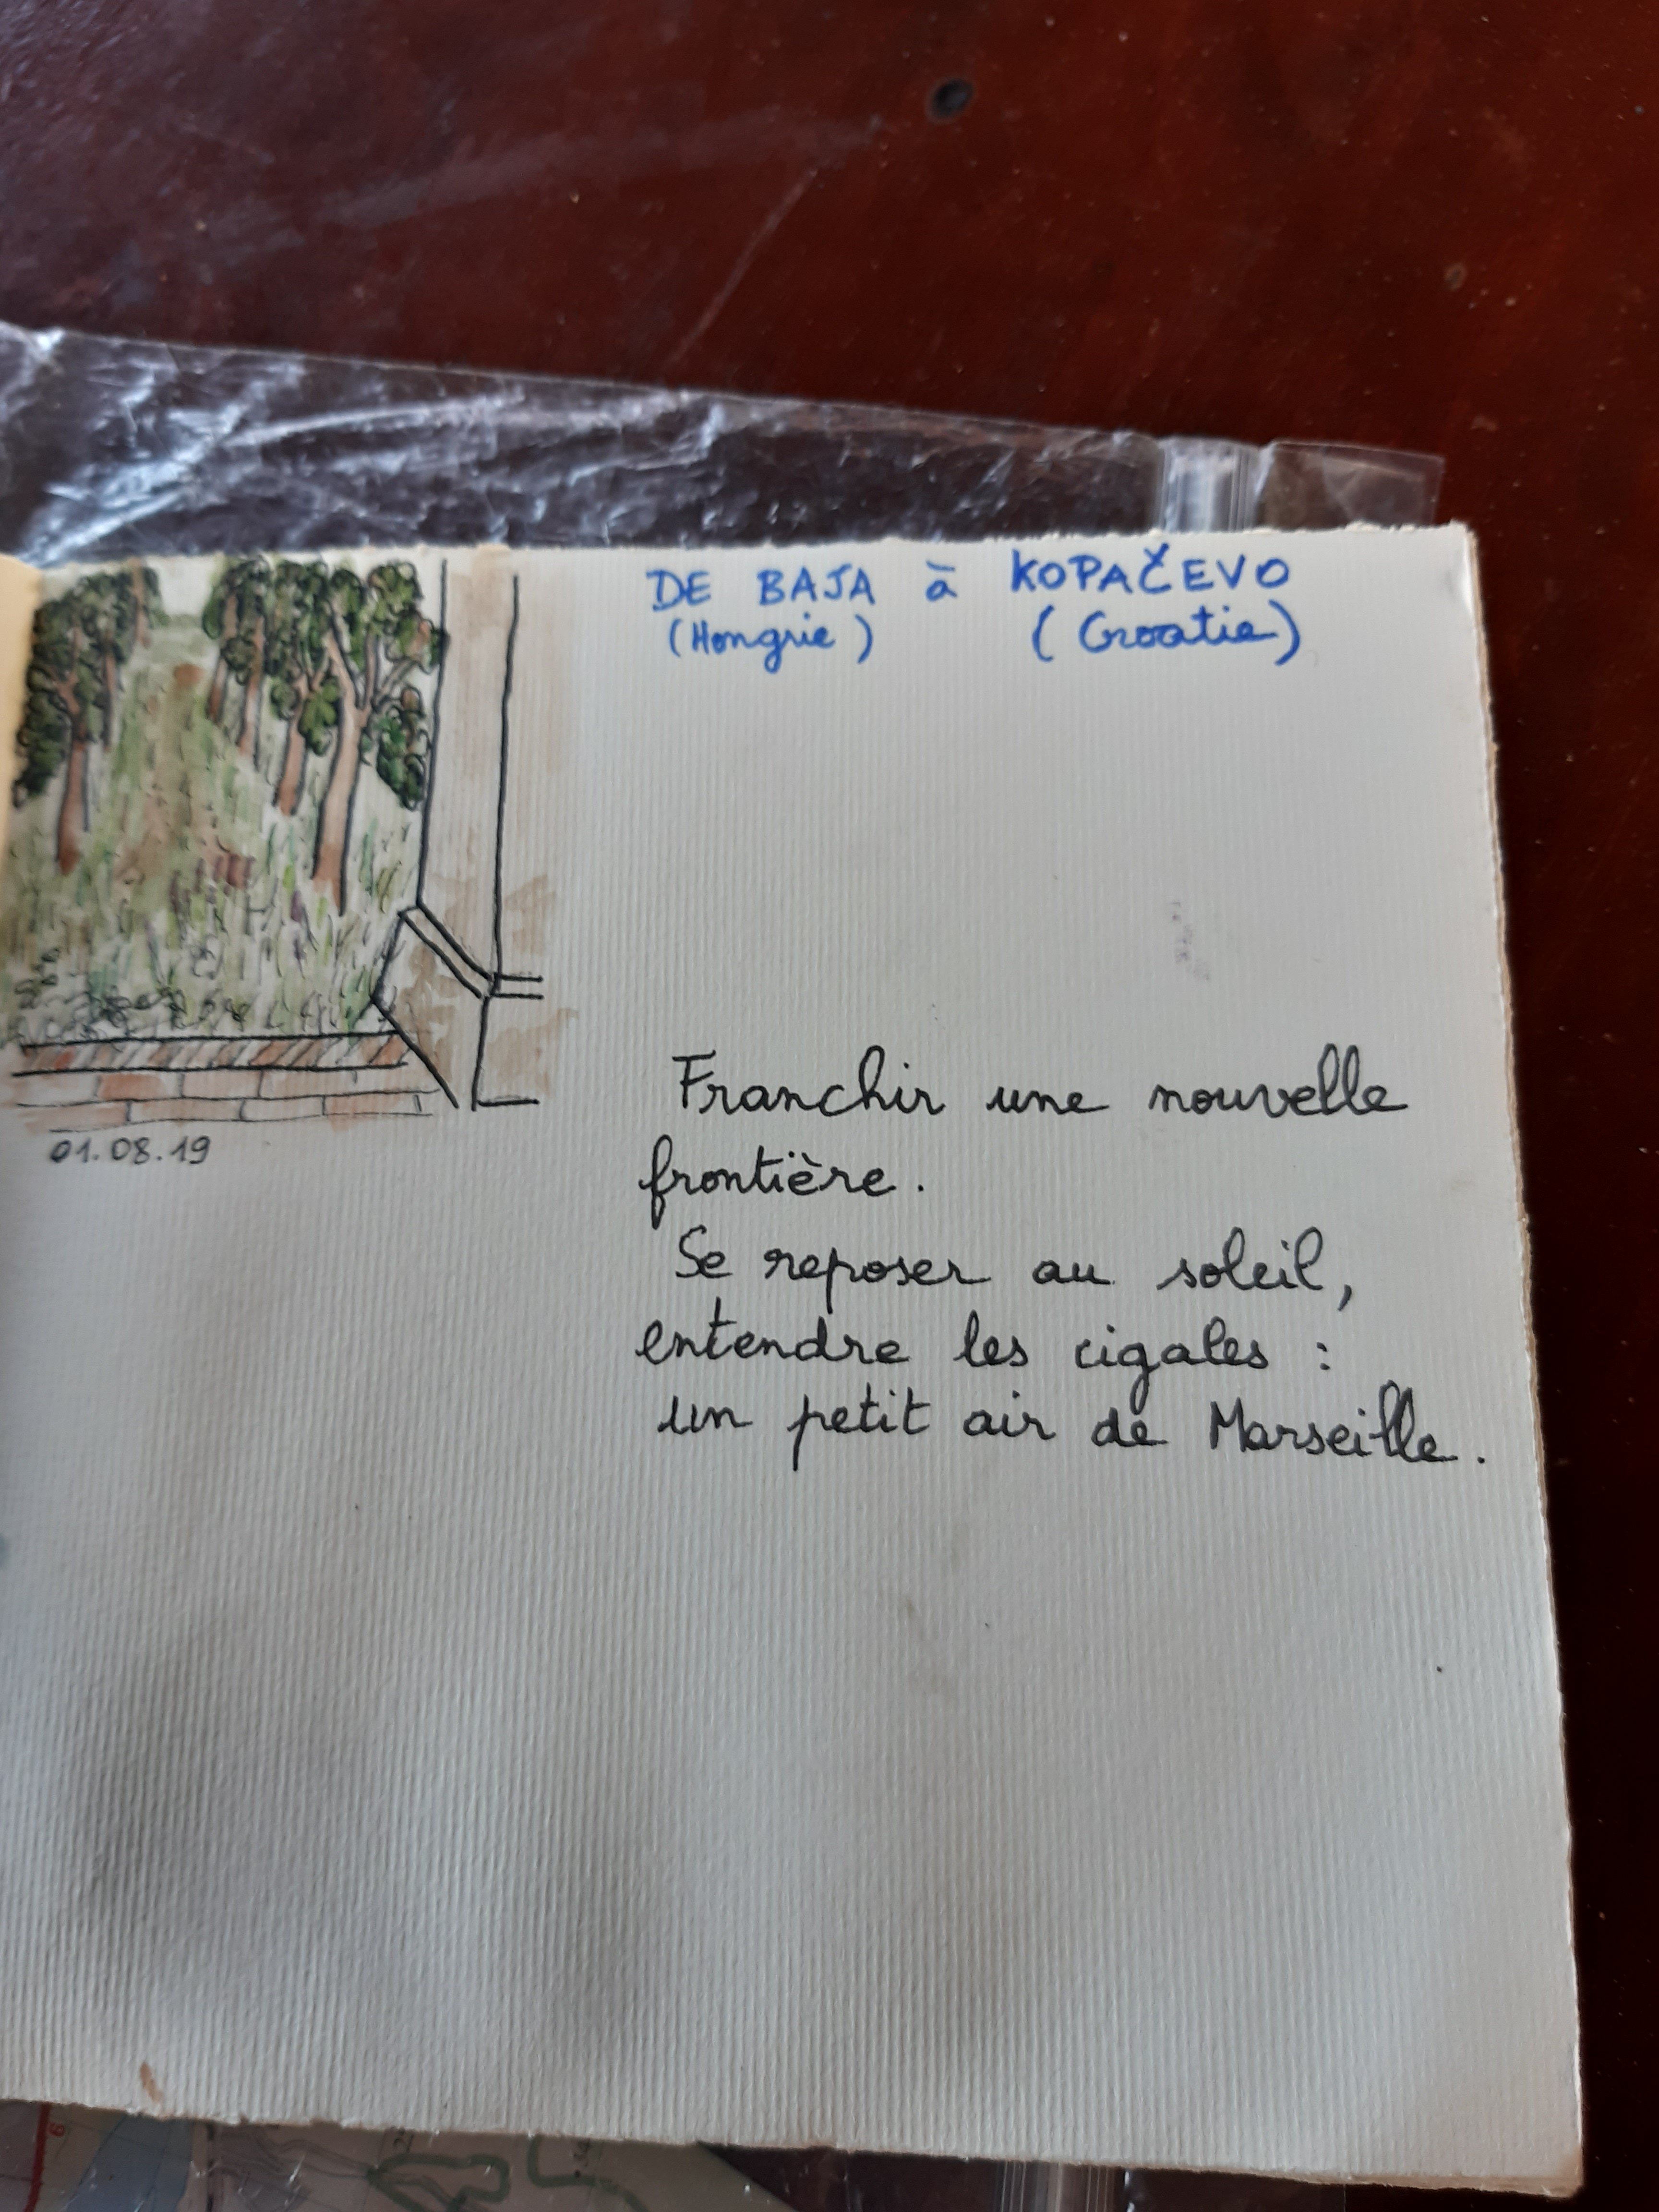 DE BAJA à KOPAČEVO
(Hongrie) (Croatie)
01.08.19
Franchir une nouvelle
frontière.
Se reposer au soleil,
entendre les cigales :
un petit air de Marseille.